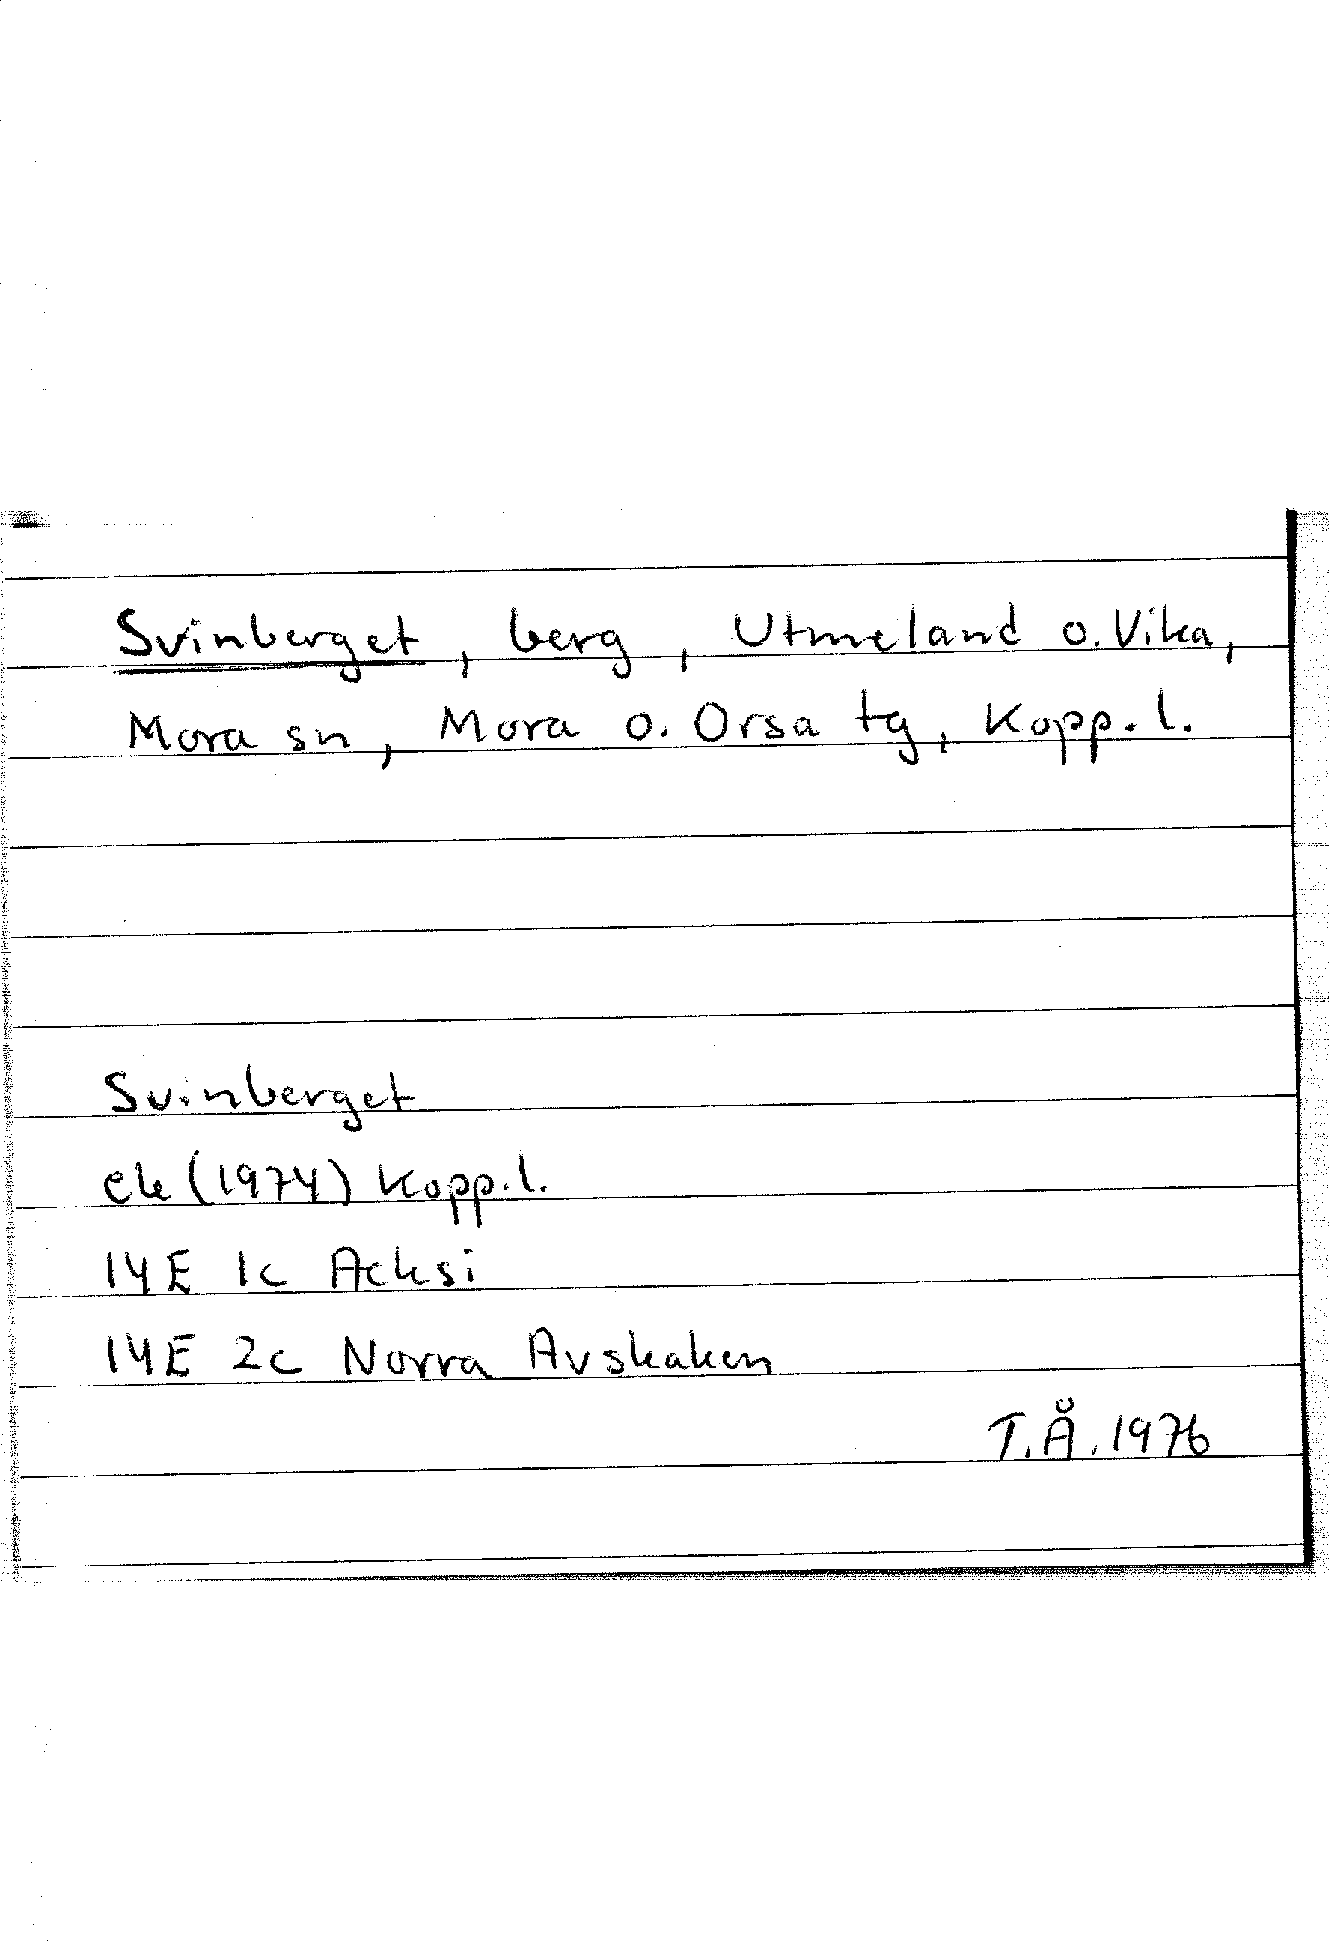 Svinberget, berg, Utmeland o. Vika,
Mora sn, Mora o. Orsa tg, Kopp. l.
Svinberget
ek (1974) Kopp. l.
14E 1c Acksi
14E 2c Norra Avskaken
T.Å. 1976